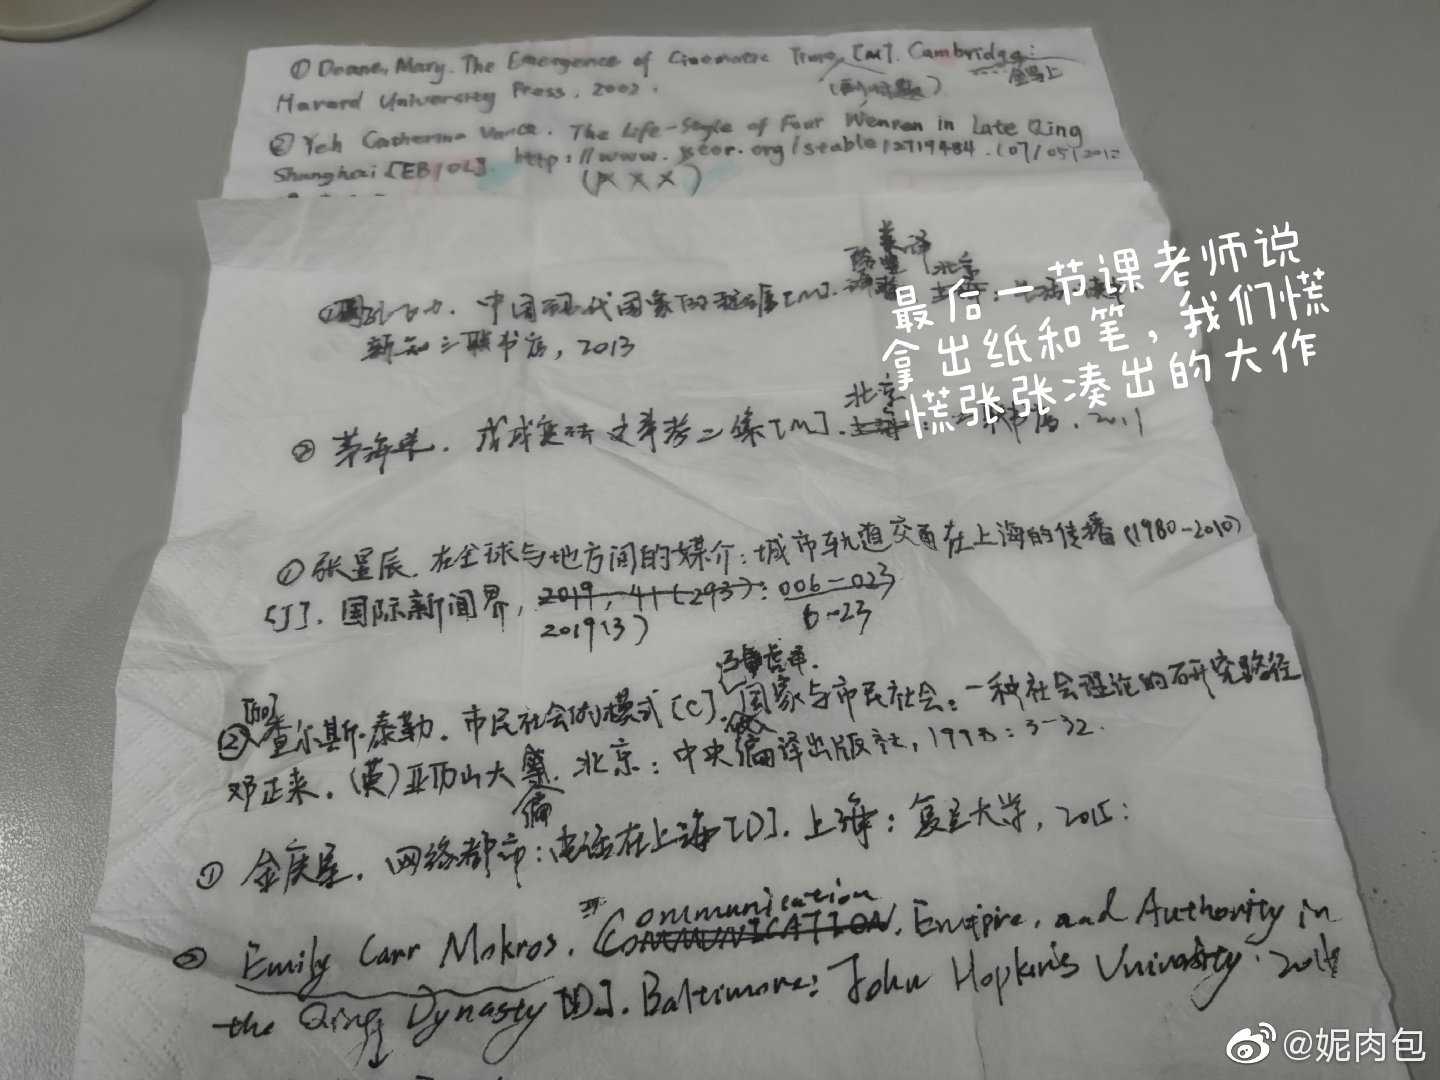 ① Doane, Mary. The Emergence of Cinematic Time, [M]. Cambridge:
(副标题)
Harvard University Press, 2002.
② Yeh Catherine Vance. The Life-Style of Four Wenren in Late Qing
Shanghai [EB/OL]. http://www.jstor.org/stable/2719484. (07/05/2012
(XXX)
中国现代国家的起源[M].
译
北京
新知三联书店, 2013
② 茅海建. 戊戌变法史事考二集[M]. 北京
上海: 三联书店, 2011
① 张昱辰. 在全球与地方间的媒介: 城市轨道交通在上海的传播 (1980-2010)
[J]. 国际新闻界, 2019, 41(293): 006-023
2019(3) 6-23
② 查尔斯·泰勒. 市民社会的模式[C]. 国家与市民社会: 一种社会理论的研究路径
邓正来, (英)亚历山大 编. 北京: 中央编译出版社, 1998: 3-32.
① 金庚星. 网络都市: 电话在上海[D]. 上海: 复旦大学, 2015:
Communication
② Emily Carr Mokros. COMMUNICATION, Empire, and Authority in
the Qing Dynasty [D]. Baltimore: John Hopkins University.
最后一节课老师说
拿出纸和笔，我们慌
慌张张凑出的大作
@妮肉包